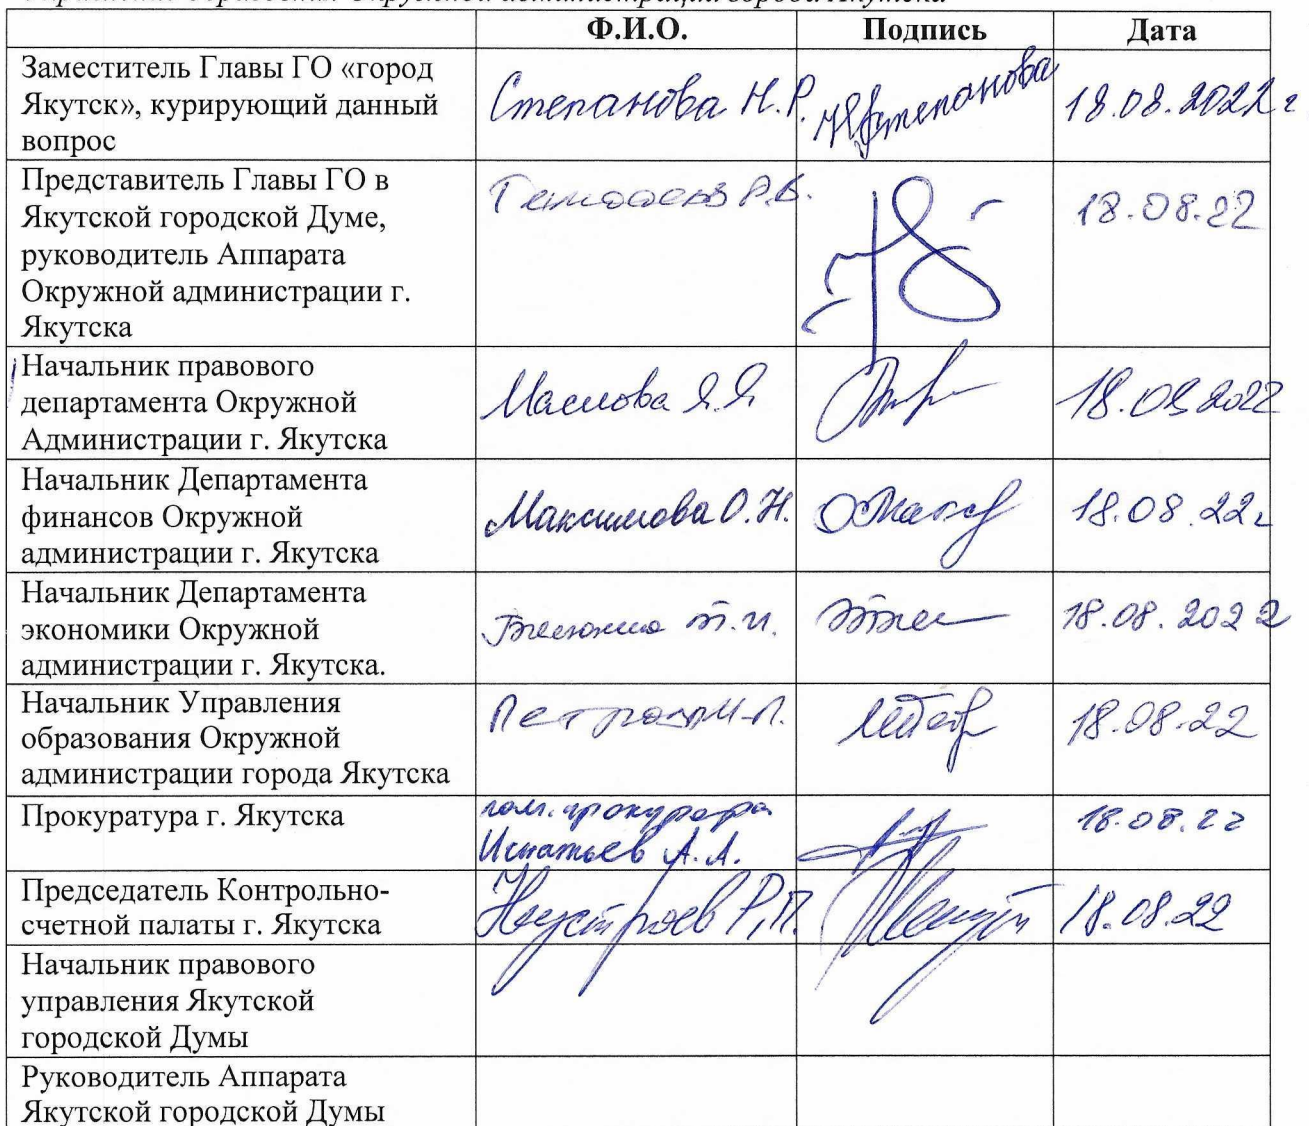 Управления образования Окружной администрации города Якутска
Ф.И.О. Подпись Дата
Заместитель Главы ГО «город
Якутск», курирующий данный
вопрос
Степанова Н.Р. Степанова 18.08.2022 г
Представитель Главы ГО в
Якутской городской Думе,
руководитель Аппарата
Окружной администрации г.
Якутска
Р.В. 18.08.22
Начальник правового
департамента Окружной
Администрации г. Якутска
Маслова Я.Я 18.08.2022
Начальник Департамента
финансов Окружной
администрации г. Якутска
Максимова О.Н. 18.08.22г
Начальник Департамента
экономики Окружной
администрации г. Якутска.
Т.И. 18.08.2022
Начальник Управления
образования Окружной
администрации города Якутска
Петров И.П. 18.08.22
Прокуратура г. Якутска
пом. прокурора
Игнатьев А.А.
18.08.22
Председатель Контрольно-
счетной палаты г. Якутска
Неустроев Р.П. 18.08.22
Начальник правового
управления Якутской
городской Думы
Руководитель Аппарата
Якутской городской Думы